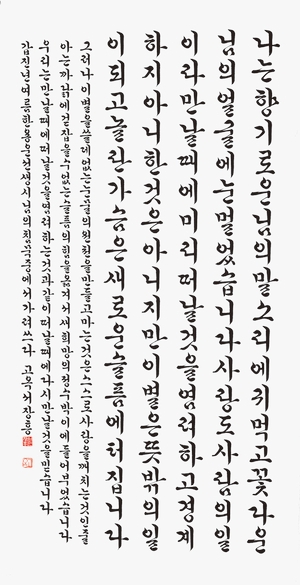 나는향기로운님의말소리에귀먹고꽃다운
님의얼굴에눈멀었습니다사랑도사람의일
이라만날때에미리떠날것을염려하고경계
하지아니한것은아니지만이별은뜻밖의일
이되고놀란가슴은새로운슬픔에터집니다
그러나이별을쓸데없는눈물의원천을만들고마는것은스스로사랑을깨치는것인줄
아는까닭에걷잡을수없는슬픔의힘을옮겨서새희망의정수박이에들어부었습니다
우리는만날때에떠날것을염려하는것과같이떠날때에다시만날것을믿습니다
갑진년여름한용운선생시님의침묵중에서가려쓰다